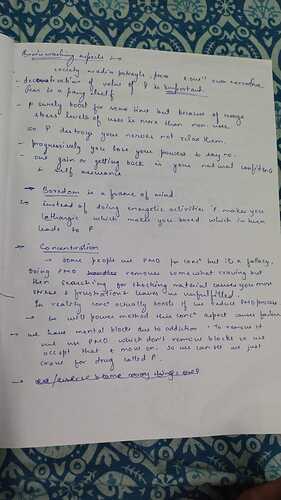 Brainwashing aspects :→
society media potrayls from own narrative
- deconstruction of value of P is important.
fear is a pang itself
- P surely boost for some time but because of usage
stress levels of users is more than non-user.
so P destroys your nerves not relax them.
- progressively you lose your powers is very no.
- one gain or getting back is your natural confidence
& self assurance
→ Boredom is a frame of mind
instead of doing energetic activities it makes you
lethargic which make you bored which in turn
leads to P
→ Concentration
→ Some people use PMO for concⁿ but its a fallacy,
Doing PMO removes somewhat craving but
then searching for checking material causes you more
stress & frustrations leaves us unfulfilled.
In reality concⁿ actually boosts if we reduce PMO process
→ In will power method this concⁿ aspect causes failure
→ we have mental blocks due to addiction. To remove it
and use PMO which don't remove blocks so we
accept that & move on. So we can see we just
crave for drug called P.
→ blame things